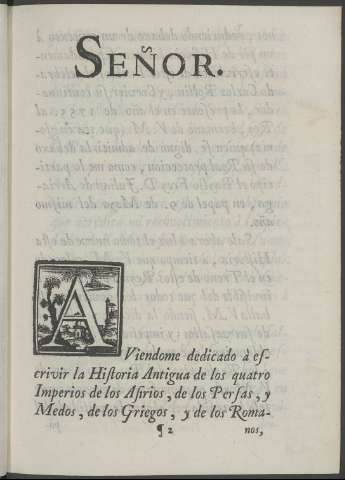 SEÑOR.
AViendome dedicado à eſ-
crivir la Hiſtoria Antigua de los quatro
Imperios de los Aſirios, de los Perſas, y
Medos, de los Griegos, y de los Roma-
¶ 2 nos,